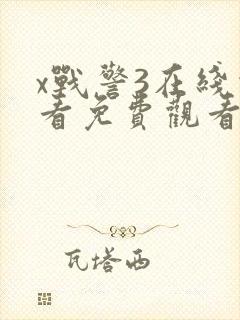 x戰警3在綫
看免費觀看
瓦塔西